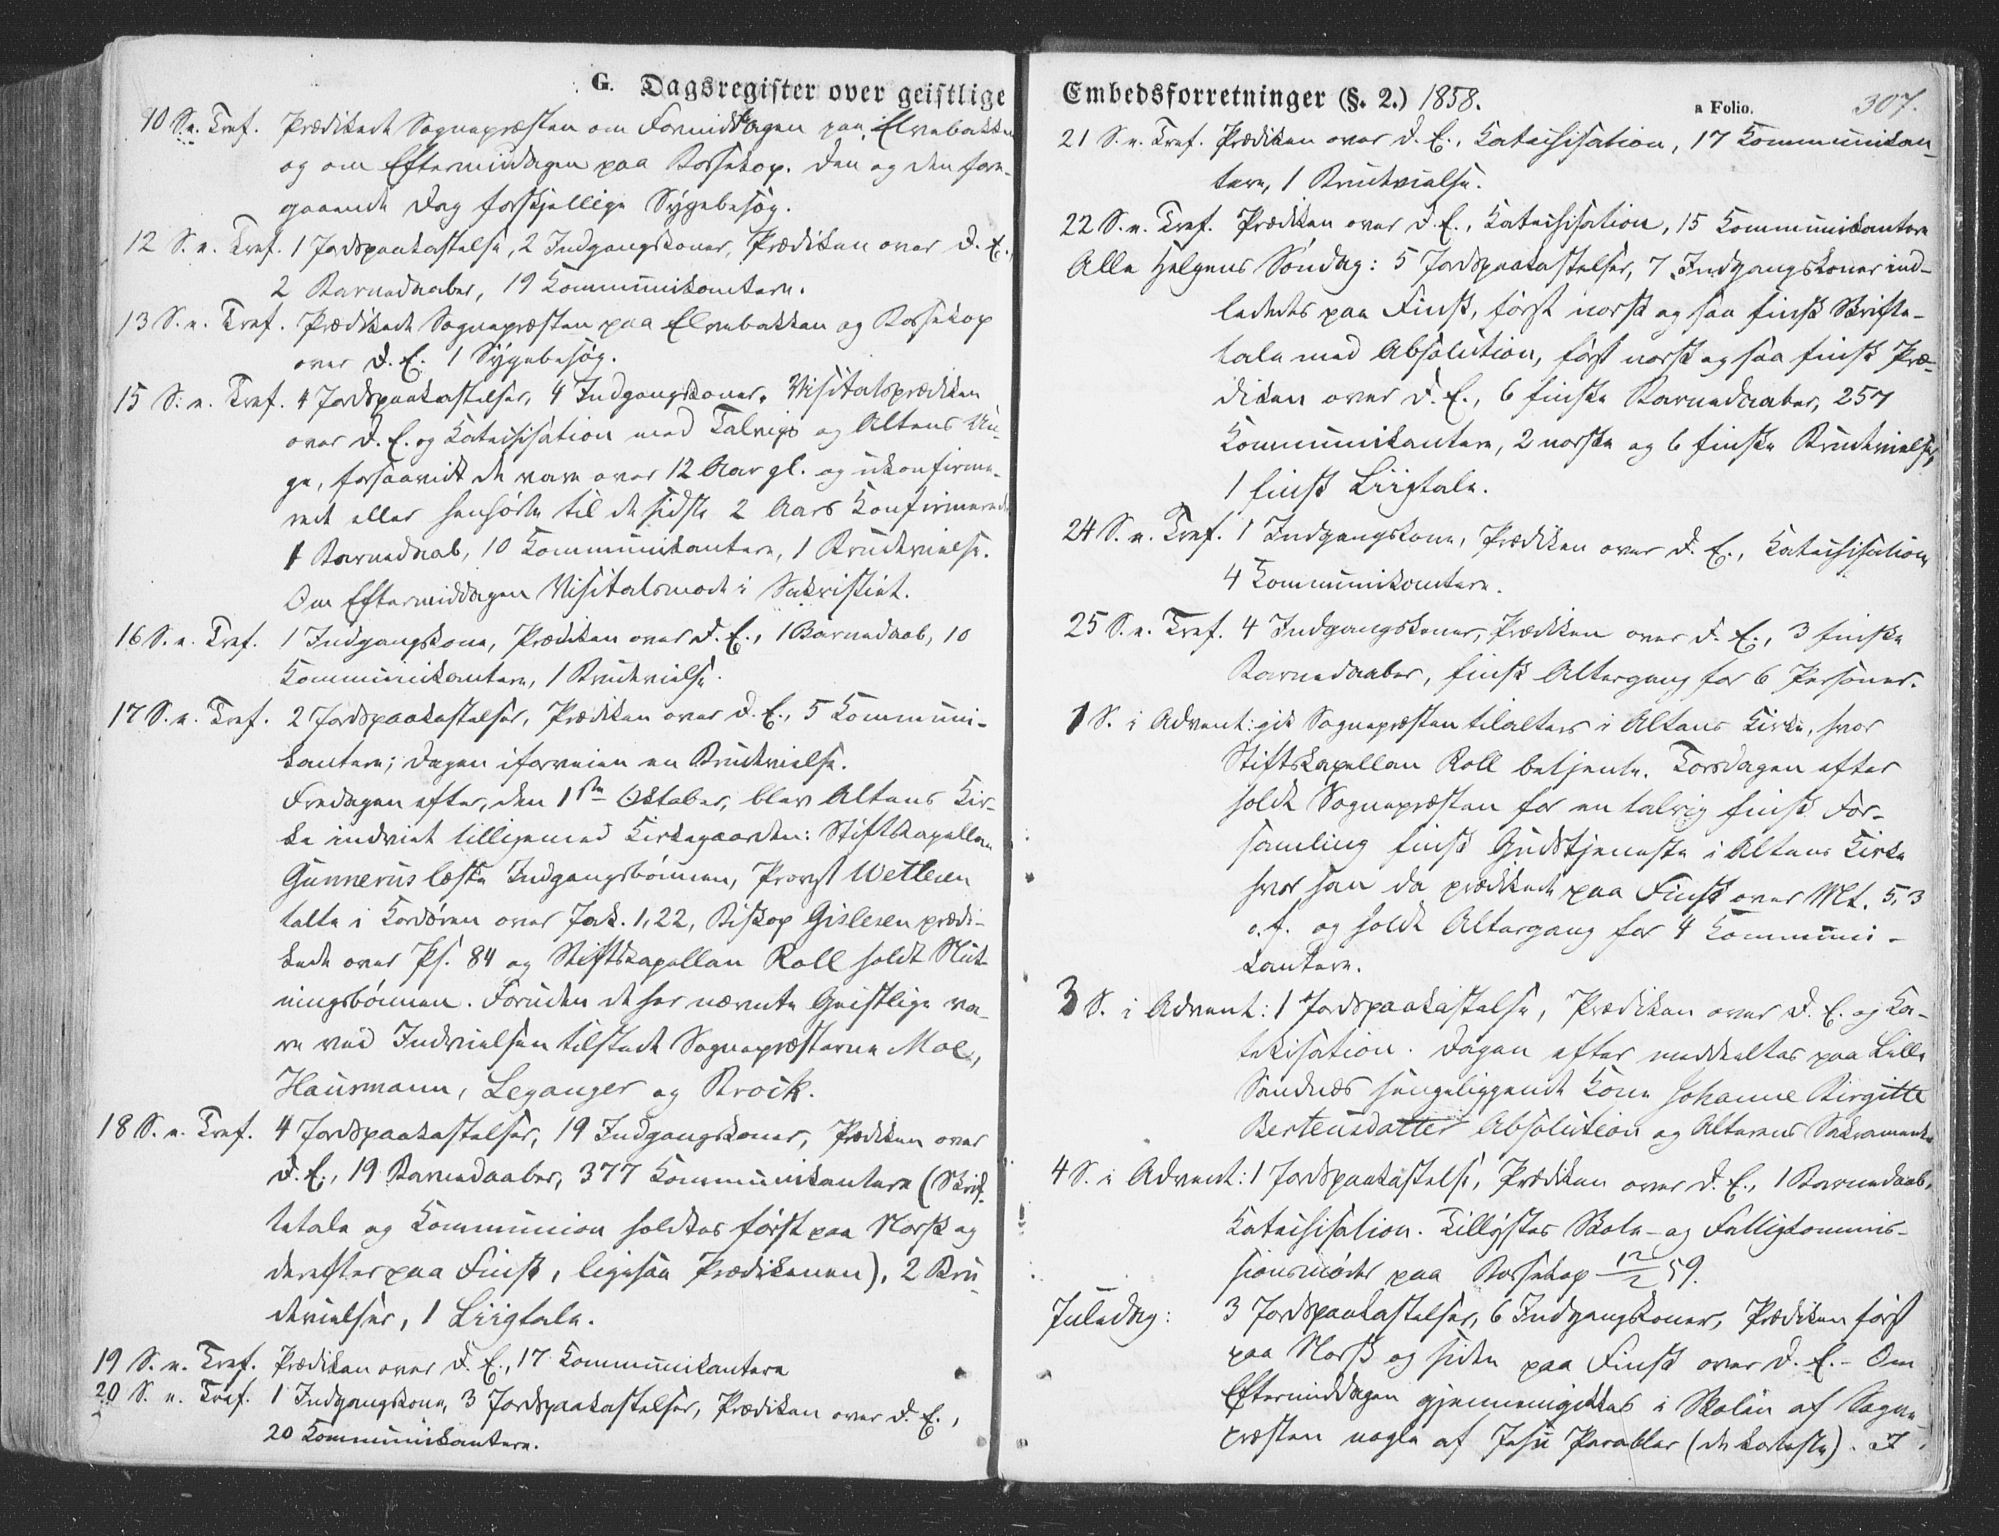 G. Dagsregister over geistlige
10 S. e. Tref. Prædikede Sognepræsten om Formiddagen paa Elvebakken
og om Eftermiddagen paa Bossekop. Den og den fore-
gaaende Dag forskjellige Sygebesøg.
12 S. e. Tref. 1 Jordspaakastelse, 2 Indgangskoner, Prædiken over D. E.,
2 Barnedaaber, 19 Kommunikantere.
13 S. e. Tref. Prædikede Sognepræsten paa Elvebakken og Bossekop
over D. E. 1 Sygebesøg.
15 S. e. Tref. 4 Jordspaakastelser, 4 Indgangskoner. Visitatsprædiken
over D. E. og Katechisation med Talvigs og Altens Un-
ge, forsaavidt de vare over 12 Aar gl. og ukonfirme-
rede eller henhørte til de sidste 2 Aars Konfirmerede
1 Barnedaab, 10 Kommunikantere, 1 Brudevielse.
Om Eftermiddagen Visitatsmøde i Sakristiet.
16 S. e. Tref. 1 Indgangskone, Prædiken over D. E., 1 Barnedaab, 10
Kommunikantere, 1 Brudevielse.
17 S. e. Tref. 2 Jordspaakastelser, Prædiken over D. E., 5 Kommuni-
kantere; Dagen iforveien en Brudevielse.
Fredagen efter, den 1ste Oktober, blev Altens Kir-
ke indviet tilligemed Kirkegaarden: Stiftskapellan
Gunnerus læste Indgangsbønnen, Provst Wetlesen
talte i Kordøren over Jak. 1,22, Biskop Gislesen prædi-
kede over Ps. 84 og Stiftskapellan Roll holdt Slut-
ningsbønnen. Foruden de her nævnte Geistlige va-
re ved Indvielsen tilstede Sognepræsterne Moe,
Hausmann, Leganger og Brock.
18 S. e. Tref. 4 Jordspaakastelser, 19 Indgangskoner, Prædiken over
D. E., 19 Barnedaaber, 377 Kommunikantere (Skrif-
tetale og Kommunion holdtes først paa Norsk og
derefter paa Finsk, ligesaa Prædikenen), 2 Bru-
devielser, 1 Liigtale.
19 S. e. Tref. Prædiken over D. E., 17 Kommunikantere
20 S. e. Tref. 1 Indgangskone, 3 Jordspaakastelser, Prædiken over D. E.,
20 Kommunikantere.
Embedsforretninger (§. 2.) 1858.
a Folio. 307.
21 S. e. Tref. Prædiken over D. E., Katechisation, 17 Kommunikan-
tere, 1 Brudevielse.
22 S. e. Tref. Prædiken over D. E., Katechisation, 15 Kommunikantere
Alle Helgens Søndag: 5 Jordspaakastelser, 7 Indgangskoner ind-
lededes paa Finsk, først norsk og saa finsk Skrifte-
tale med Absolution, først norsk og saa finsk Præ-
diken over D. E., 6 finske Barnedaaber, 257
Kommunikantere, 2 norske og 6 finske Brudevielser,
1 finsk Liigtale.
24 S. e. Tref. 1 Indgangskone, Prædiken over D. E., Katechisation,
4 Kommunikantere.
25 S. e. Tref. 4 Indgangskoner, Prædiken over D. E., 3 finske
Barnedaaber, finsk Altergang for 6 Personer.
1 S. i Advent: gik Sognepræsten tilalters i Altens Kirke, hvor
Stiftskapellan Roll betjente. Torsdagen efter
holdt Sognepræsten for en talrig finsk For-
samling finsk Gudstjeneste i Altens Kirke
hvor han da prædikede paa Finsk over Mt. 5,3
o.f. og holdt Altergang for 4 Kommuni-
kantere.
3 S. i Advent: 1 Jordspaakastelse, Prædiken over D. E. og Ka-
tekisation. Dagen efter meddeeltes paa Lille
Sandnæs sengeliggende Kone Johanne Birgitte
Bertensdatter Absolution og Alterens Sakramente
4 S. i Advent: 1 Jordspaakastelse, Prædiken over D. E., 1 Barnedaab,
Katechisation. Tillystes Skole- og Fattigkommis-
sionsmøder paa Bossekop 12/2 59.
Juledag: 3 Jordspaakastelser, 6 Indgangskoner, Prædiken først
paa Norsk og siden paa Finsk over D. E. - Om
Eftermiddagen gjennemgikkes i Skolen af Sogne-
præsten nogle af Jesu Parabler (de korteste). I